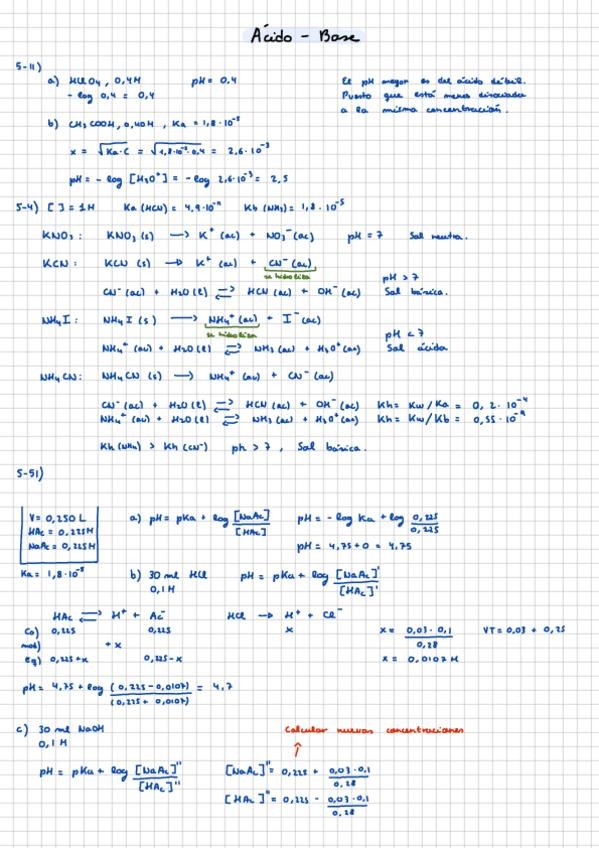 Ácido - Base
5-11)
a) HClO4, 0,4M pH = 0.4
- log 0,4 = 0,4
El pH mayor es del ácido débil.
Puesto que está menos disociado
a la misma concentración.
b) CH3COOH, 0,40M, Ka = 1,8·10⁻⁵
x = √Ka·C = √1,8·10⁻⁵·0,4 = 2,6·10⁻³
pH = - log [H3O⁺] = - log 2,6·10⁻³ = 2,5
5-4) [ ] = 1M Ka (HCN) = 4,9·10⁻¹¹ Kb (NH3) = 1,8·10⁻⁵
KNO3: KNO3 (s) → K⁺ (ac) + NO3⁻ (ac) pH = 7 Sal neutra.
KCN: KCN (s) → K⁺ (ac) + CN⁻ (ac)
se hidroliza
pH > 7
CN⁻ (ac) + H2O (l) ⇌ HCN (ac) + OH⁻ (ac) Sal básica.
NH4I: NH4I (s) → NH4⁺ (ac) + I⁻ (ac)
se hidroliza
pH < 7
NH4⁺ (ac) + H2O (l) ⇌ NH3 (ac) + H3O⁺ (ac) Sal ácida
NH4CN: NH4CN (s) → NH4⁺ (ac) + CN⁻ (ac)
CN⁻ (ac) + H2O (l) ⇌ HCN (ac) + OH⁻ (ac) Kh = Kw/Ka = 0,2·10⁻⁴
NH4⁺ (ac) + H2O (l) ⇌ NH3 (ac) + H3O⁺ (ac) Kh = Kw/Kb = 0,55·10⁻⁹
Kh (NH4) > Kh (CN⁻) ph > 7, Sal básica.
5-51)
V = 0,250 L
HAc = 0,225M
NaAc = 0,225M
Ka = 1,8·10⁻⁵
a) pH = pKa + log [NaAc]/[HAc] pH = - log Ka + log 0,225/0,225
pH = 4,75 + 0 = 4,75
b) 30 ml HCl pH = pKa + log [NaAc]'/[HAc]'
0,1 M
HAc ⇌ H⁺ + Ac⁻ HCl → H⁺ + Cl⁻
Co) 0,225 0,225 x x = 0,03·0,1/0,28 VT = 0,03 + 0,25
mod) + x
eq) 0,225+x 0,225-x x = 0,0107 M
pH = 4,75 + log (0,225-0,0107)/(0,225+0,0107) = 4,7
c) 30 ml NaOH
0,1 M
Calcular nuevas concentraciones
↑
pH = pKa + log [NaAc]''/[HAc]'' [NaAc]'' = 0,225 + 0,03·0,1/0,28
[HAc]'' = 0,225 - 0,03·0,1/0,28